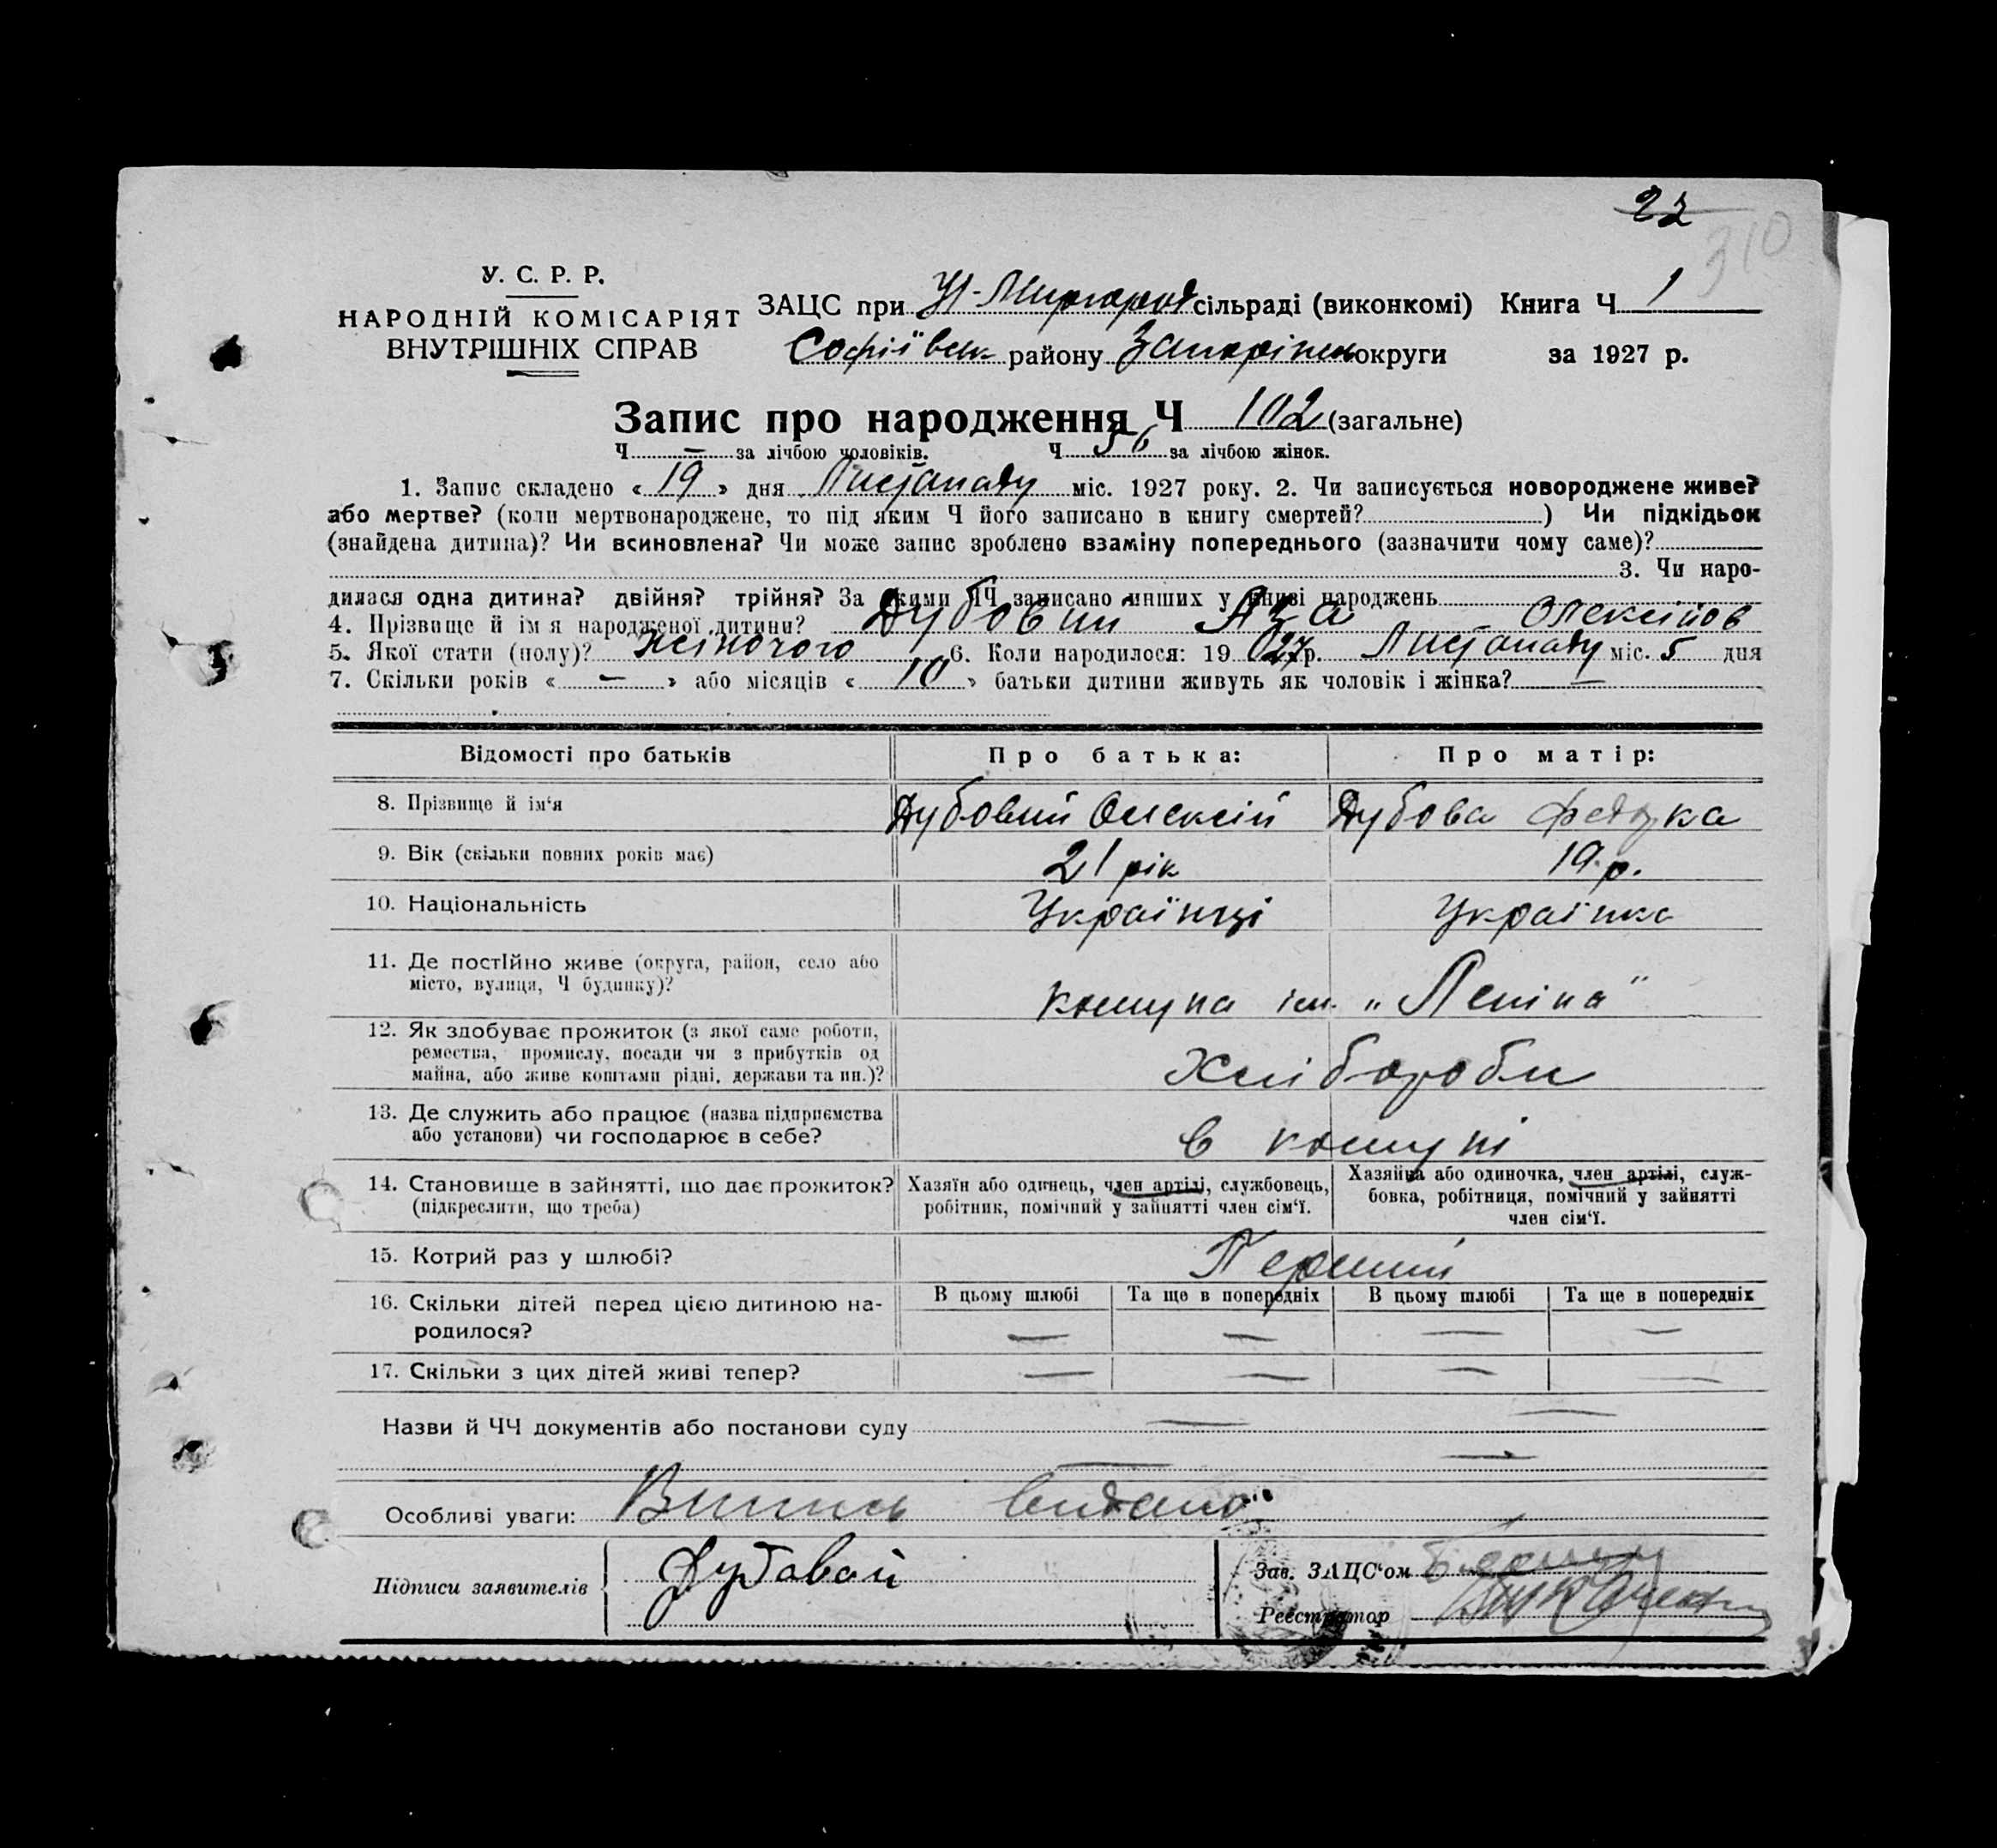 22
310
У. С. Р. Р.
НАРОДНІЙ КОМІСАРІЯТ
ВНУТРІШНІХ СПРАВ
ЗАЦС при Н-Миргород сільраді (виконкомі) Книга Ч 1
Софіївськ району Запоріжськ округи за 1927 р.
Запис про народження Ч 102 (загальне)
Ч — за лічбою чоловіків. Ч 56 за лічбою жінок.
1. Запис складено « 19 » дня Листопаду міс. 1927 року. 2. Чи записується новороджене живе?
або мертве? (коли мертвонароджене, то під яким Ч його записано в книгу смертей? ) Чи підкідьок
(знайдена дитина)? Чи всиновлена? Чи може запис зроблено взаміну попереднього (зазначити чому саме)?
3. Чи наро-
дилася одна дитина? двійня? трійня? За якими ЧЧ записано инших у книзі народжень
4. Прізвище й ім я народженої дитини? Дубовий Аза Олексійов
5. Якої стати (полу)? жіночого 6. Коли народилося: 19 027 р. Листопаду міс. 5 дня
7. Скільки років « — » або місяців « 10 » батьки дитини живуть як чоловік і жінка? —
Відомості про батьків Про батька: Про матір:
8. Прізвище й ім‘я Дубовий Олексій Дубова Федорка
9. Вік (скільки повних років має) 21 рік 19 р.
10. Національність Українці Українка
11. Де постійно живе (округа, район, село або
місто, вулиця, Ч будинку)? комуна ім. „Леніна“
12. Як здобуває прожиток (з якої саме роботи,
ремества, промислу, посади чи з прибутків од
майна, або живе коштами рідні, держави та ин.)? Хлібороби
13. Де служить або працює (назва підприємства
або установи) чи господарює в себе? в комуні
14. Становище в зайнятті, що дає прожиток?
(підкреслити, що треба)
Хазяїн або одинець, член артілі, службовець,
робітник, помічний у зайнятті член сім‘ї.
Хазяйка або одиночка, член артілі, служ-
бовка, робітниця, помічний у зайнятті
член сім‘ї.
15. Котрий раз у шлюбі? Перший
16. Скільки дітей перед цією дитиною на-
родилося?
В цьому шлюбі Та ще в попередніх В цьому шлюбі Та ще в попередніх
— — — —
17. Скільки з цих дітей живі тепер? — — — —
Назви й ЧЧ документів або постанови суду — —
— —
Особливі уваги: Випись видано
Підписи заявителів Дубавой
Зав. ЗАЦС‘ом
Реєстратор